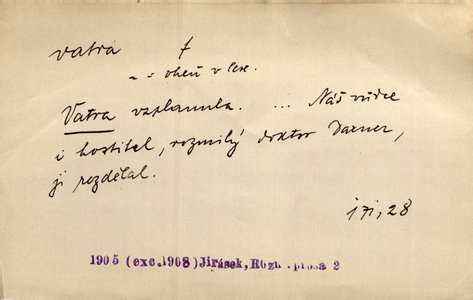 vatra f
~ = oheň v lese.
Vatra vzplanula. ... Náš vůdce
i hostitel, rozmilý doktor Daxner,
ji rozdělal.
171, 28
1905 (exc.1908) Jirásek, Rozm. prosa 2